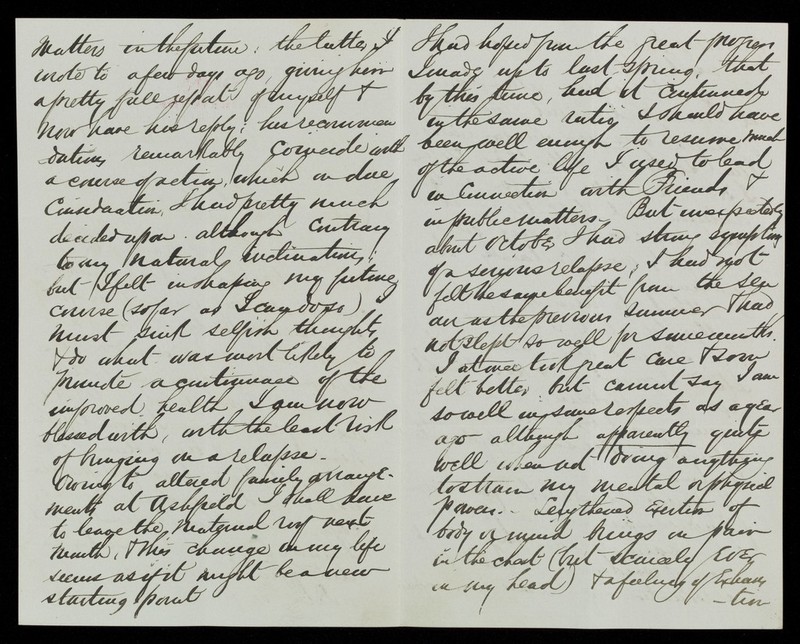 matters in the future: the latter I
wrote to a few days ago, giving him
a pretty full report of myself &
now have his reply; his recommen
dations remarkably coincide with
a course of action, which on due
Consideration, I had pretty much
decided upon. although Contrary
to my natural inclinations;
but I felt in shaping my future
course (so far as I can do so) I
must sink selfish thoughts
& do what was most likely to
promote a continuance of the
improved health I am now
blessed with, with the least risk
of bringing on a relapse.
Owing to altered family arrange-
ments at Ashfield I shall have
to leave the Maternal roof next
month, & this change in my life
seems as if it might be a new
starting point
I had hoped from the great progress
I made up to last Spring, that
by this time, had it continued
in the same ratio, I should have
been well enough to resume much
of the active life I used to lead
in Connection with Friends &
in public matters. But unexpectedly
about October I had strong symptoms
of a serious relapse; I had not
felt the same benefit from the sea
air as the previous summer & had
not slept so well for some months.
I at once took great care & soon
felt better but cannot say I am
so well in some respects as a year
ago although apparently quite
well when not doing anything
to strain my mental or physical
powers. Lengthened Exertion of
body or mind brings on pain
in the chest (but scarcely Ever
in my head) & a feeling of Exhaus
-tion